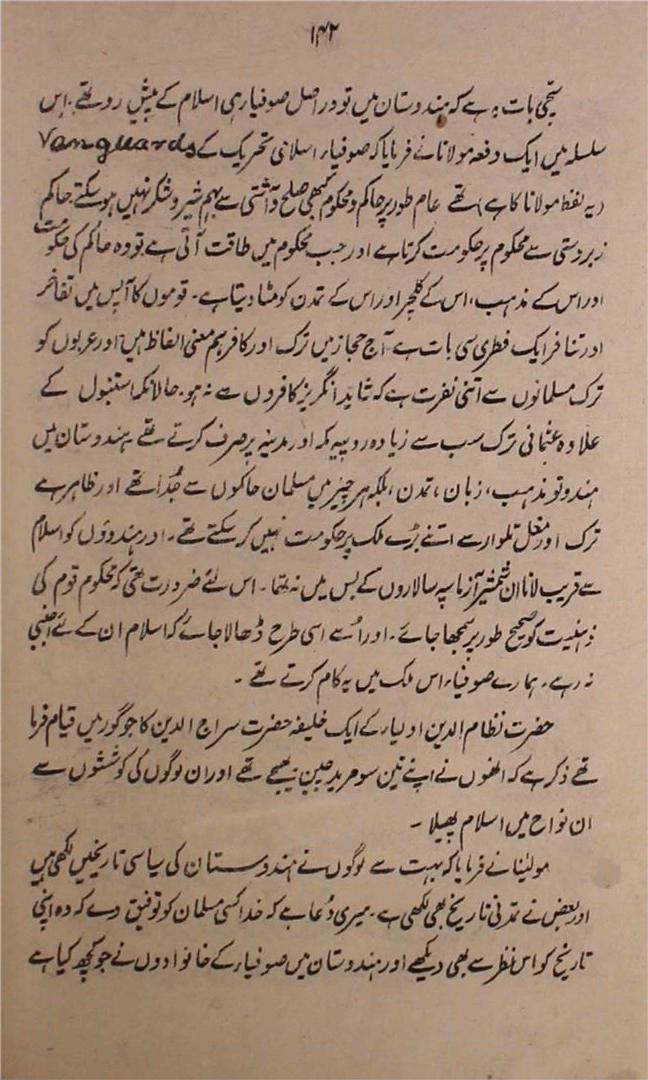 ۱۴۲
سچّی بات یہ ہے کہ ہندوستان میں تو دراصل صوفیار ہی اسلام کے پیش رو تھے۔ اس
سلسلہ میں ایک دفعہ مولانا نے فرمایا کہ صوفیار اسلامی تحریک کے Vanguards
(یہ لفظ مولانا کا ہے) تھے عام طور پر حاکم و محکوم کبھی صلح و آشتی سے بہم شیر و شکر نہیں ہو سکتے حاکم
زبردستی سے محکوم پر حکومت کرتا ہے اور جب محکوم میں طاقت آتی ہے تو وہ حاکم کی حکومت
اور اس کے مذہب، اس کے کلچر اور اس کے تمدن کو مٹا دیتا ہے۔ قوموں کا آپس میں تفاخر
اور تنافر ایک فطری سی بات ہے۔ آج حجاز میں ترک اور کافر ہم معنی الفاظ ہیں اور عربوں کو
ترک مسلمانوں سے اتنی نفرت ہے کہ شاید انگریز کافروں سے نہ ہو۔ حالانکہ استنبول کے
علاوہ عثمانی ترک سب سے زیادہ روپیہ مکہ اور مدینہ پر صرف کرتے تھے ہندوستان میں
ہندو تو مذہب، زبان، تمدن، بلکہ ہر چیز میں مسلمان حاکموں سے جُدا تھے اور ظاہر ہے
ترک اور مغل تلوار سے اتنے بڑے ملک پر حکومت نہیں کر سکتے تھے۔ اور ہندوؤں کو اسلام
سے قریب لانا ان شمشیر آزما سپہ سالاروں کے بس میں نہ تھا۔ اس لئے ضرورت تھی کہ محکوم قوم کی
ذہنیت کو صحیح طور پر سمجھا جائے۔ اور اُسے اسی طرح ڈھالا جائے کہ اسلام ان کے لئے اجنبی
نہ رہے۔ ہمارے صوفیاء اس ملک میں یہ کام کرتے تھے۔
حضرت نظام الدین اولیار کے ایک خلیفہ حضرت سراج الدین کا جو گور میں قیام فرما
تھے ذکر ہے کہ انھوں نے اپنے تین سو مریدین بھیجے تھے اور ان لوگوں کی کوششوں سے
ان نواح میں اسلام پھیلا۔
مولینا نے فرمایا کہ بہت سے لوگوں نے ہندوستان کی سیاسی تاریخیں لکھی ہیں
اور بعض نے تمدنی تاریخ بھی لکھی ہے۔ میری دُعا ہے کہ خدا کسی مسلمان کو توفیق دے کہ وہ اپنی
تاریخ کو اس نظر سے بھی دیکھے اور ہندوستان میں صوفیار کے خانوادوں نے جو کچھ کیا ہے